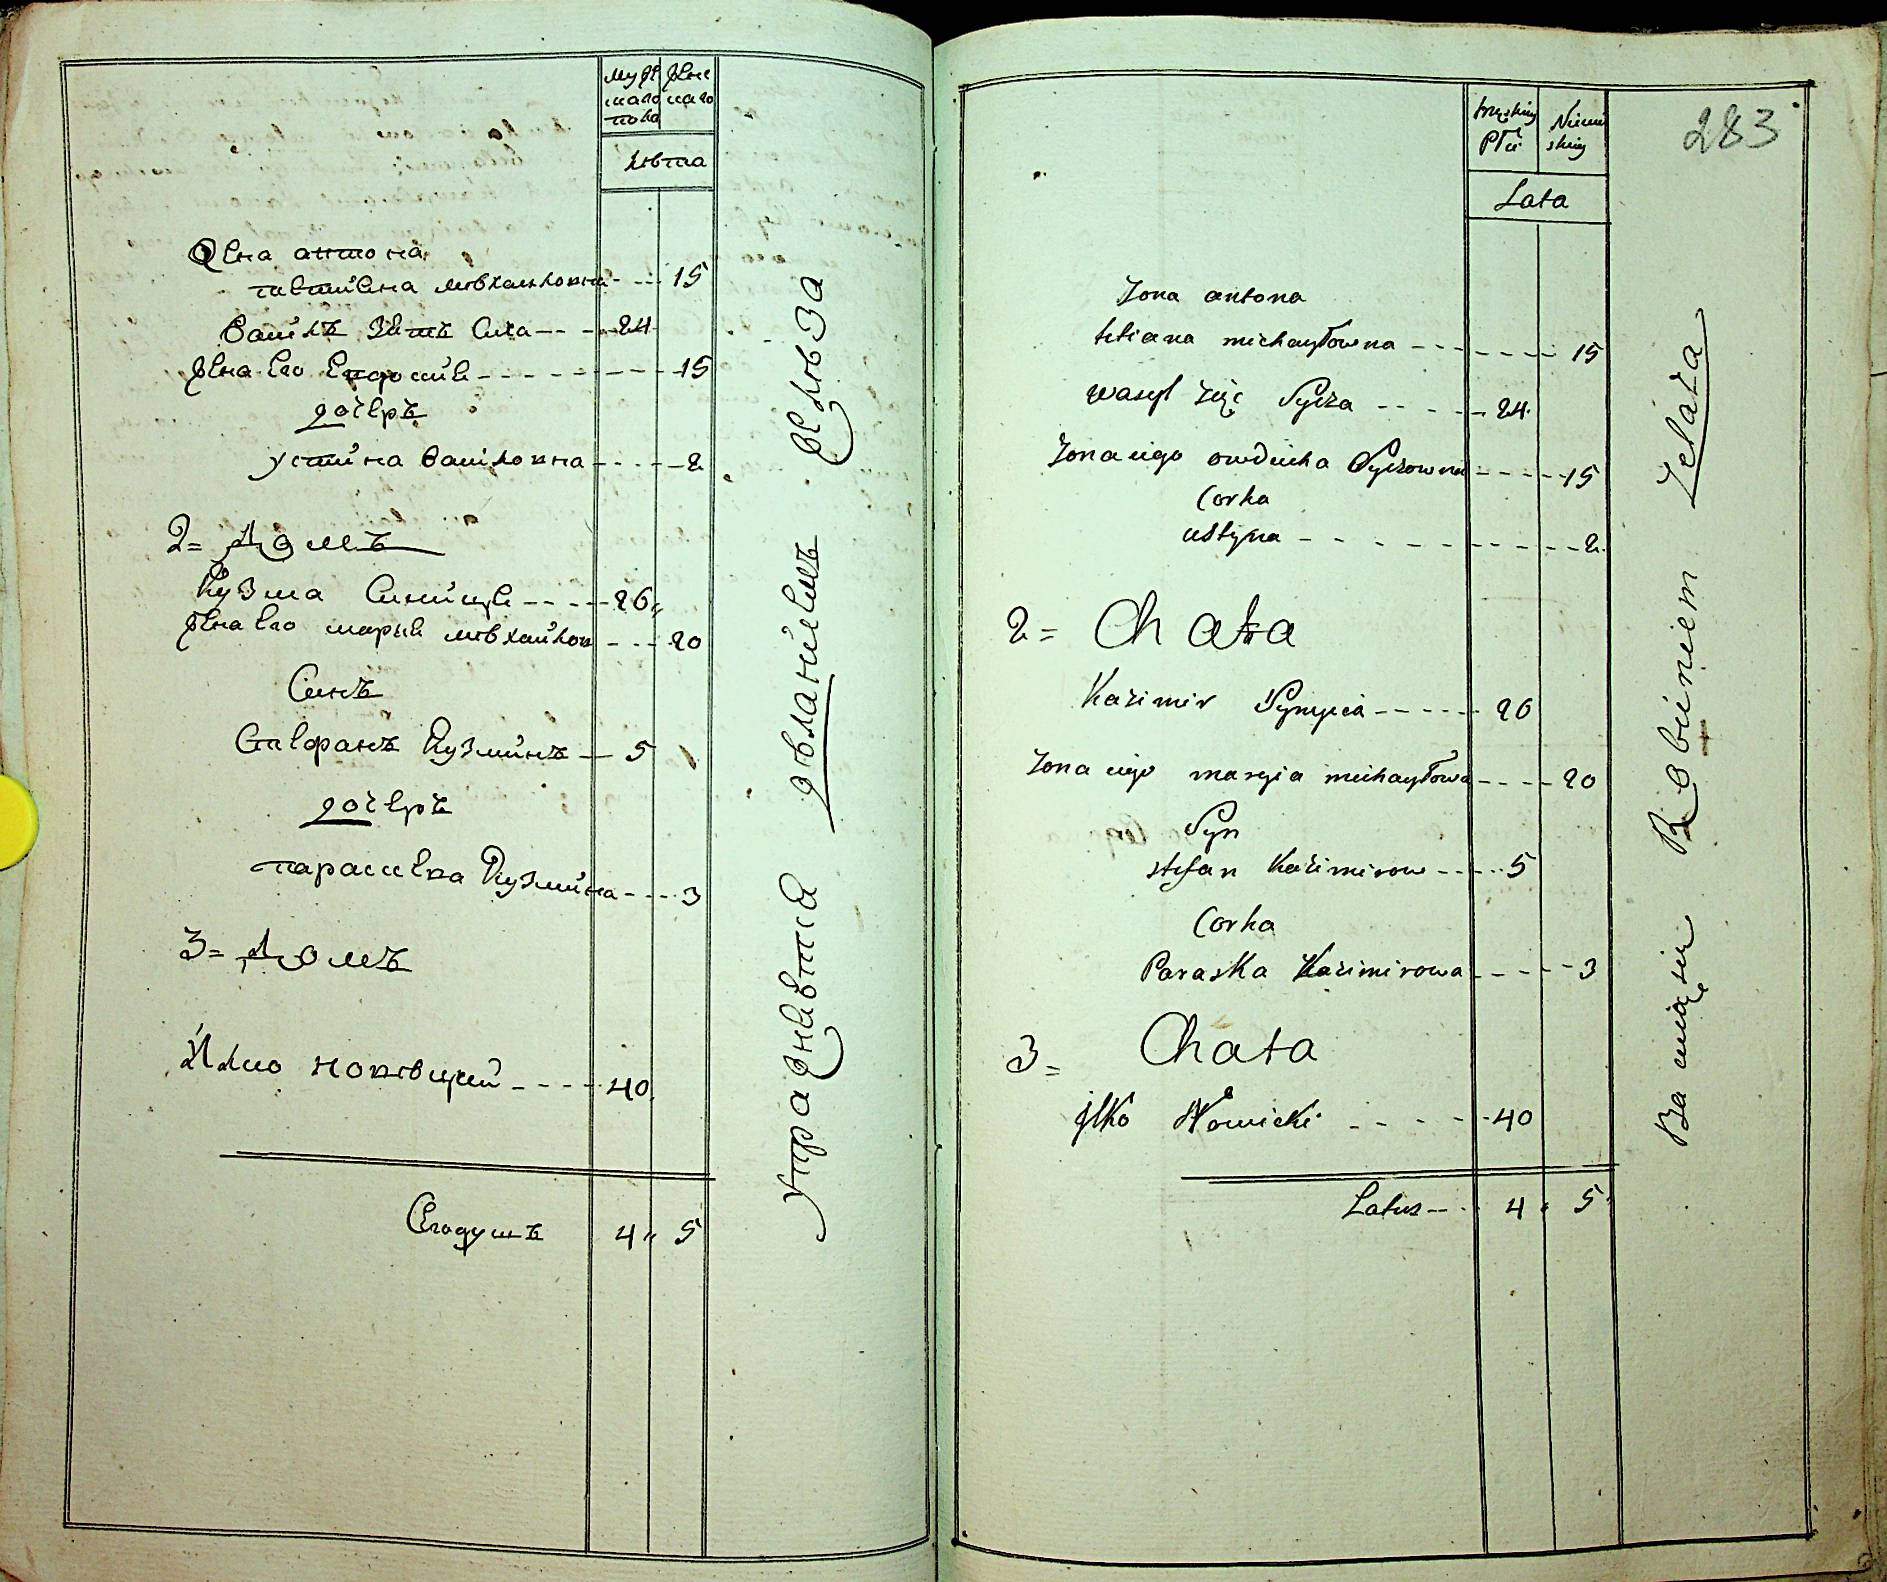 мужескаго пола
женскаго
лѣта
Жена антона
татиана михаиловна 15
Василъ Зять Сиха 24
Жена Его Евдокия 15
дочерь
устина Василовна 2
2= Домъ
Кузма Синица 26
Жена Его мария михайлов 20
Синъ
Стефанъ Кузминъ 5
дочерь
парасиева Кузмина 3
3= Домъ
Илко новѣцкий 40
Сегодушъ 4 5
Упражняется дѣланиемъ желѣза
283
męskiey Płci
Niewieskiey
Lata
Zona antona
tetiana michayłowna 15
wasyl Zięć Sycza 24
Zona iego owducha Syczowna 15
Corka
ustyna 2
2= Chata
Kazimir Synyca 26
Zona iego marya michayłowa 20
Syn
stefan Kazimirow 5
Corka
Paraska Kazimirowa 3
3= Chata
jlko Nowicki 40
Latus 4 5
Bawią się Robieniem Żelaza